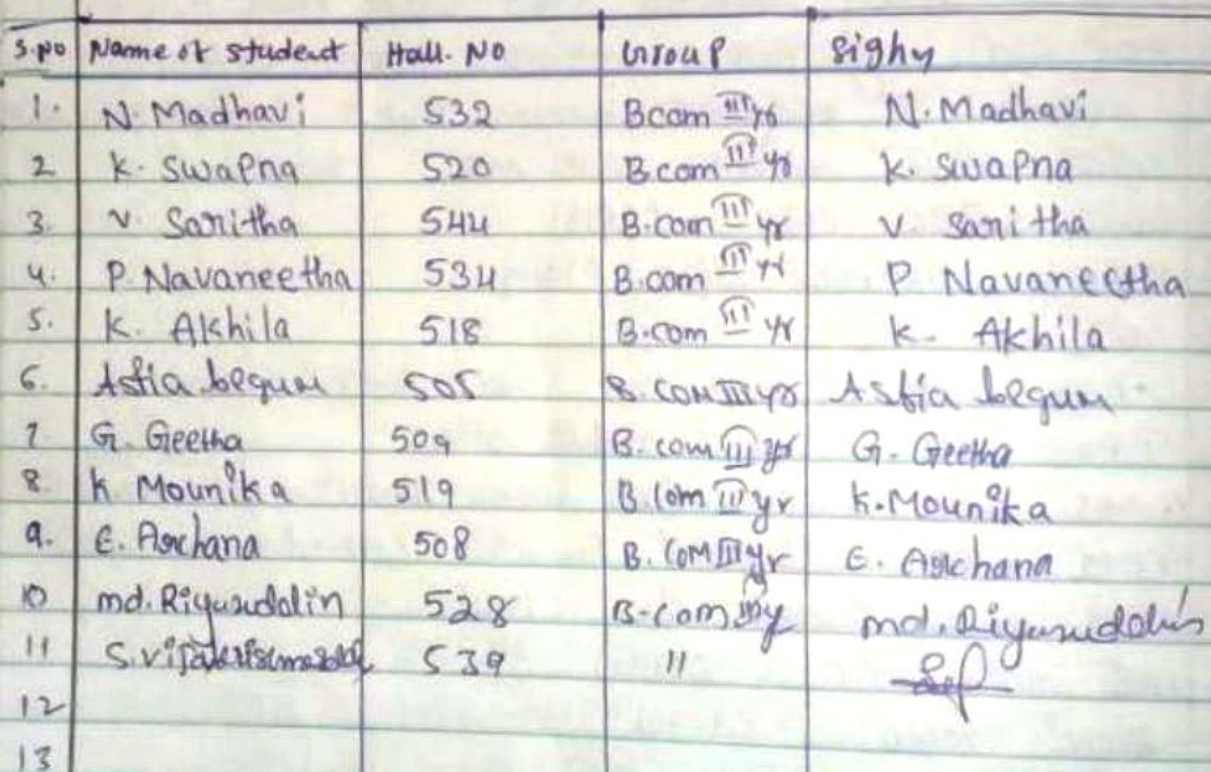 S.No Name of Student Hall. No Group Sighy
1. N. Madhavi 532 Bcom III yr N. Madhavi
2 K. Swapna 520 B.com III yr K. Swapna
3. V. Saritha 544 B.com III yr V Saritha
4. P. Navaneetha 534 B.com III yr P Navaneetha
5. K. Akhila 518 B.com III yr K. Akhila
6. Asfia begum 505 B. com III yr Asfia begum
7 G. Geetha 509 B. com III yr G. Geetha
8 K Mounika 519 B. Com III yr K. Mounika
9. E. Archana 508 B. Com III yr E. Archana
10 md. 528 B-com md.
11 539 "
12
13